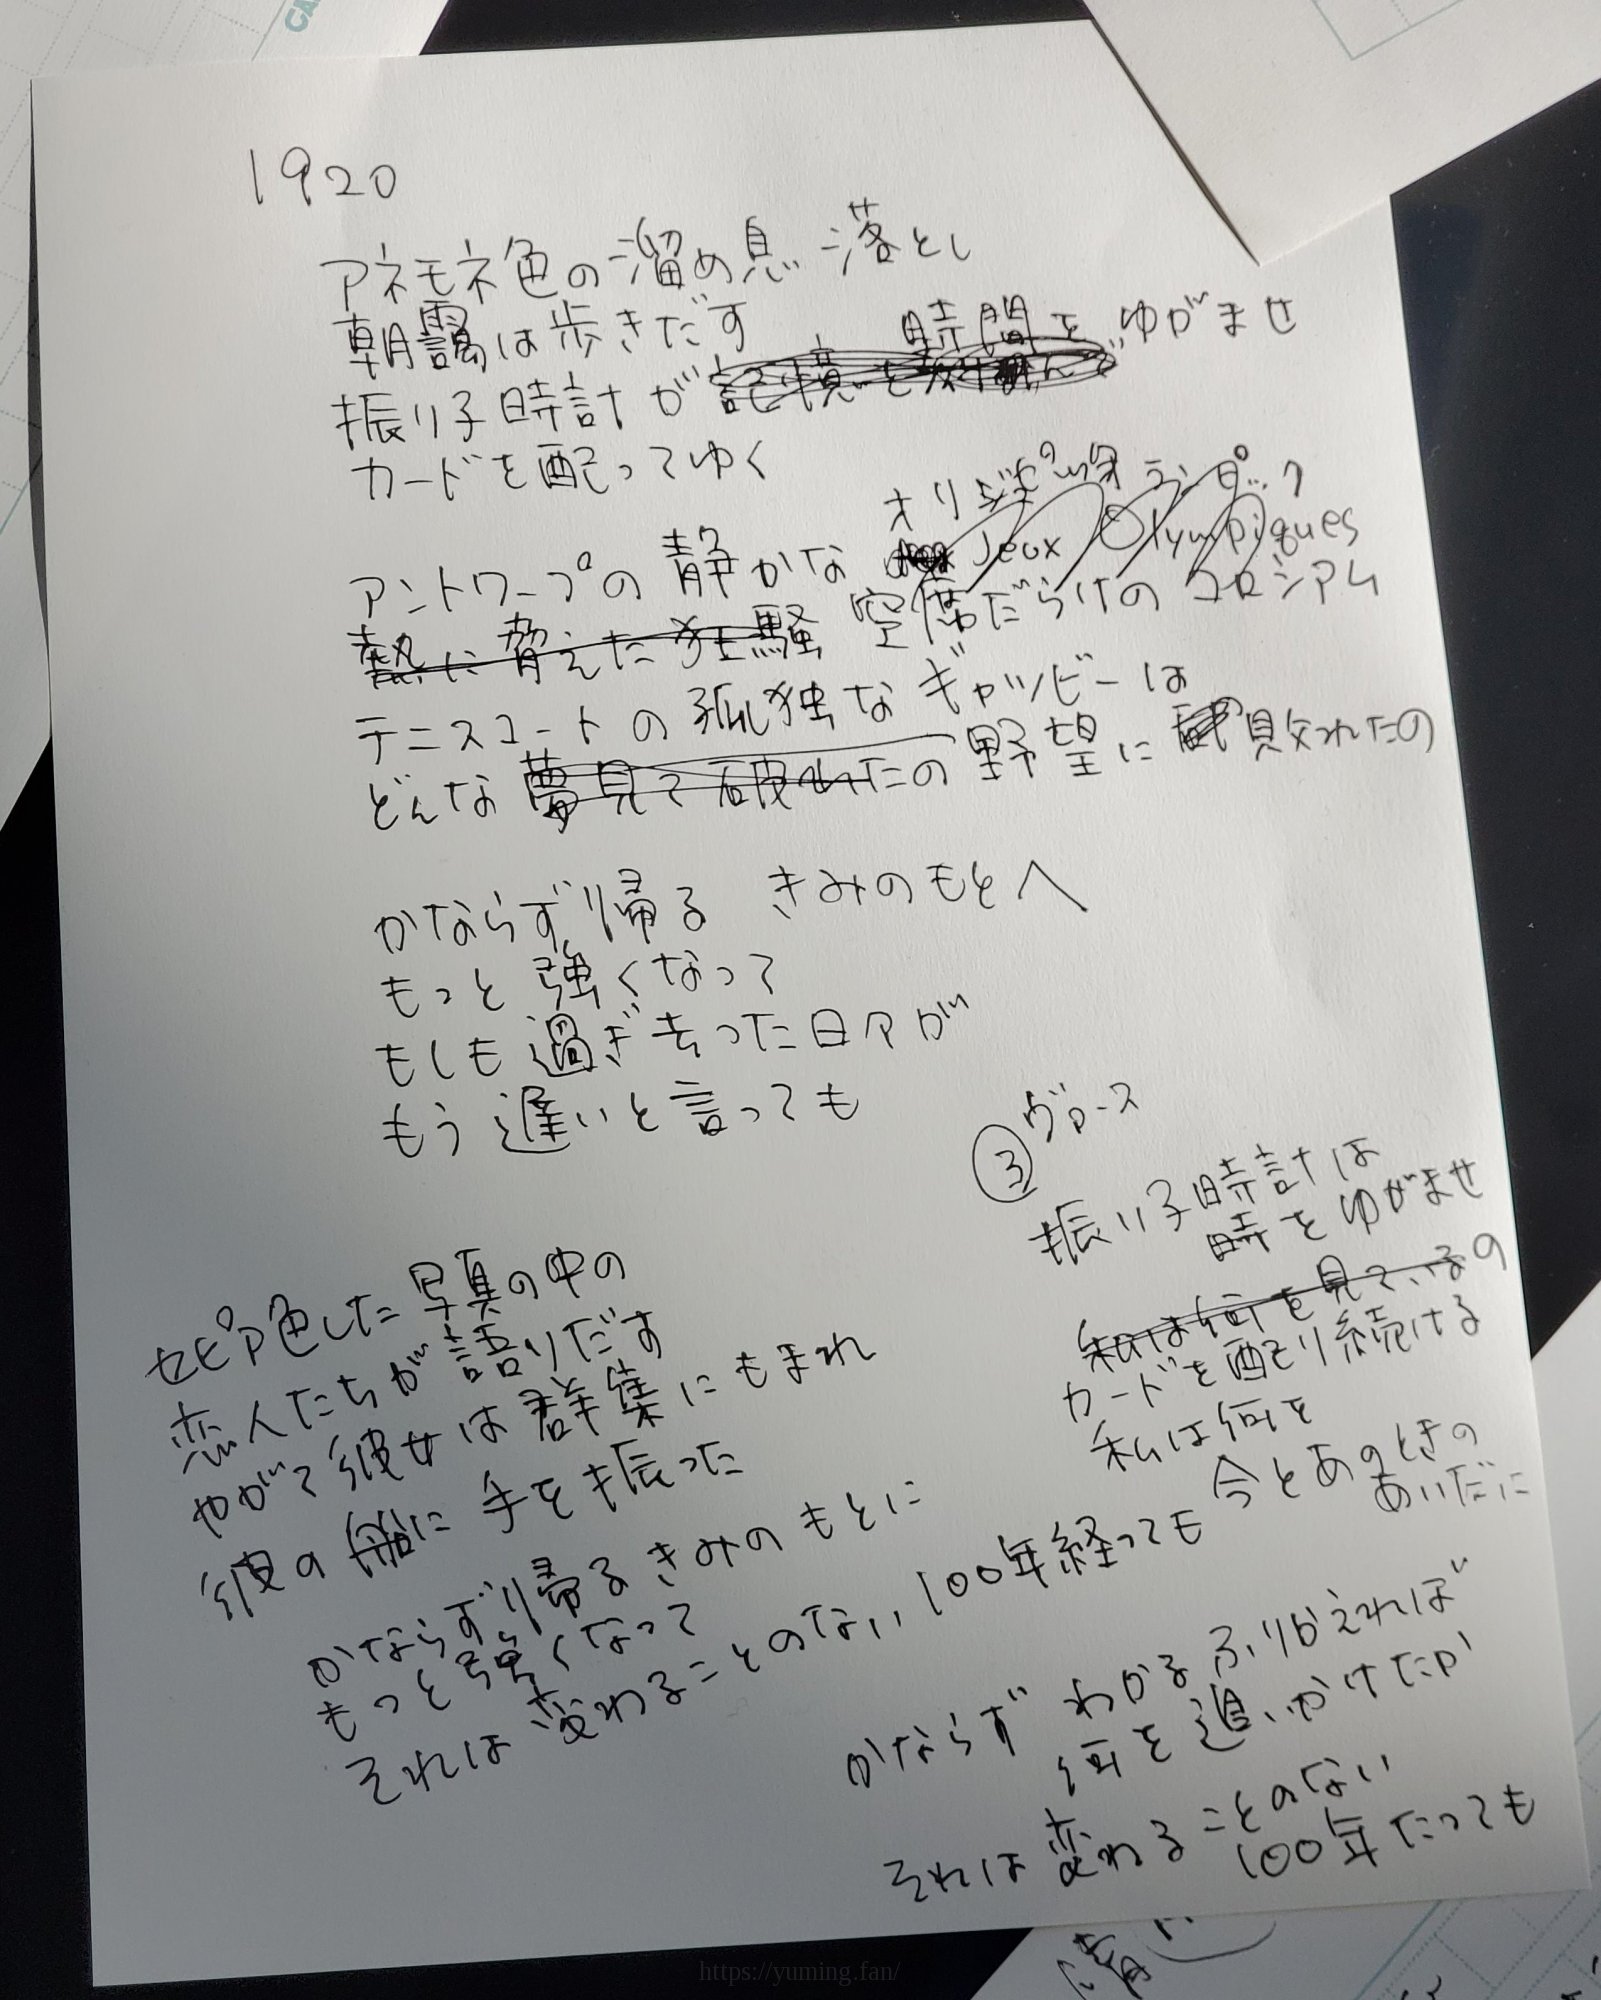 1920
アネモネ色の溜め息落とし
朝靄は歩きだす
時間をゆがませ
振り子時計が
カードを配ってゆく
オリンピック
アントワープの静かな Jeux Olympiques
熱に脅えた狂騒 空席だらけのコロシアム
テニスコートの孤独なギャツビーは
どんな夢見て破れたの野望に見失れたの
かならず帰る きみのもとへ
もっと強くなって
もしも過ぎ去った日々が
もう遅いと言っても
セピア色した写真の中の
恋人たちが語りだす
やがて彼女は群集にもまれ
彼の船に手を振った
かならず帰る きみのもとに
もっと強くなって
それは変わることのない 100年経っても
③ヴァース
振り子時計は
時をゆがませ
私は何を見ているの
カードを配り続ける
私は何を
今とあのときの
あいだに
かならず わかる ふりかえれば
何を追いかけたか
それは変わることのない
100年たっても
https://yuming.fan/